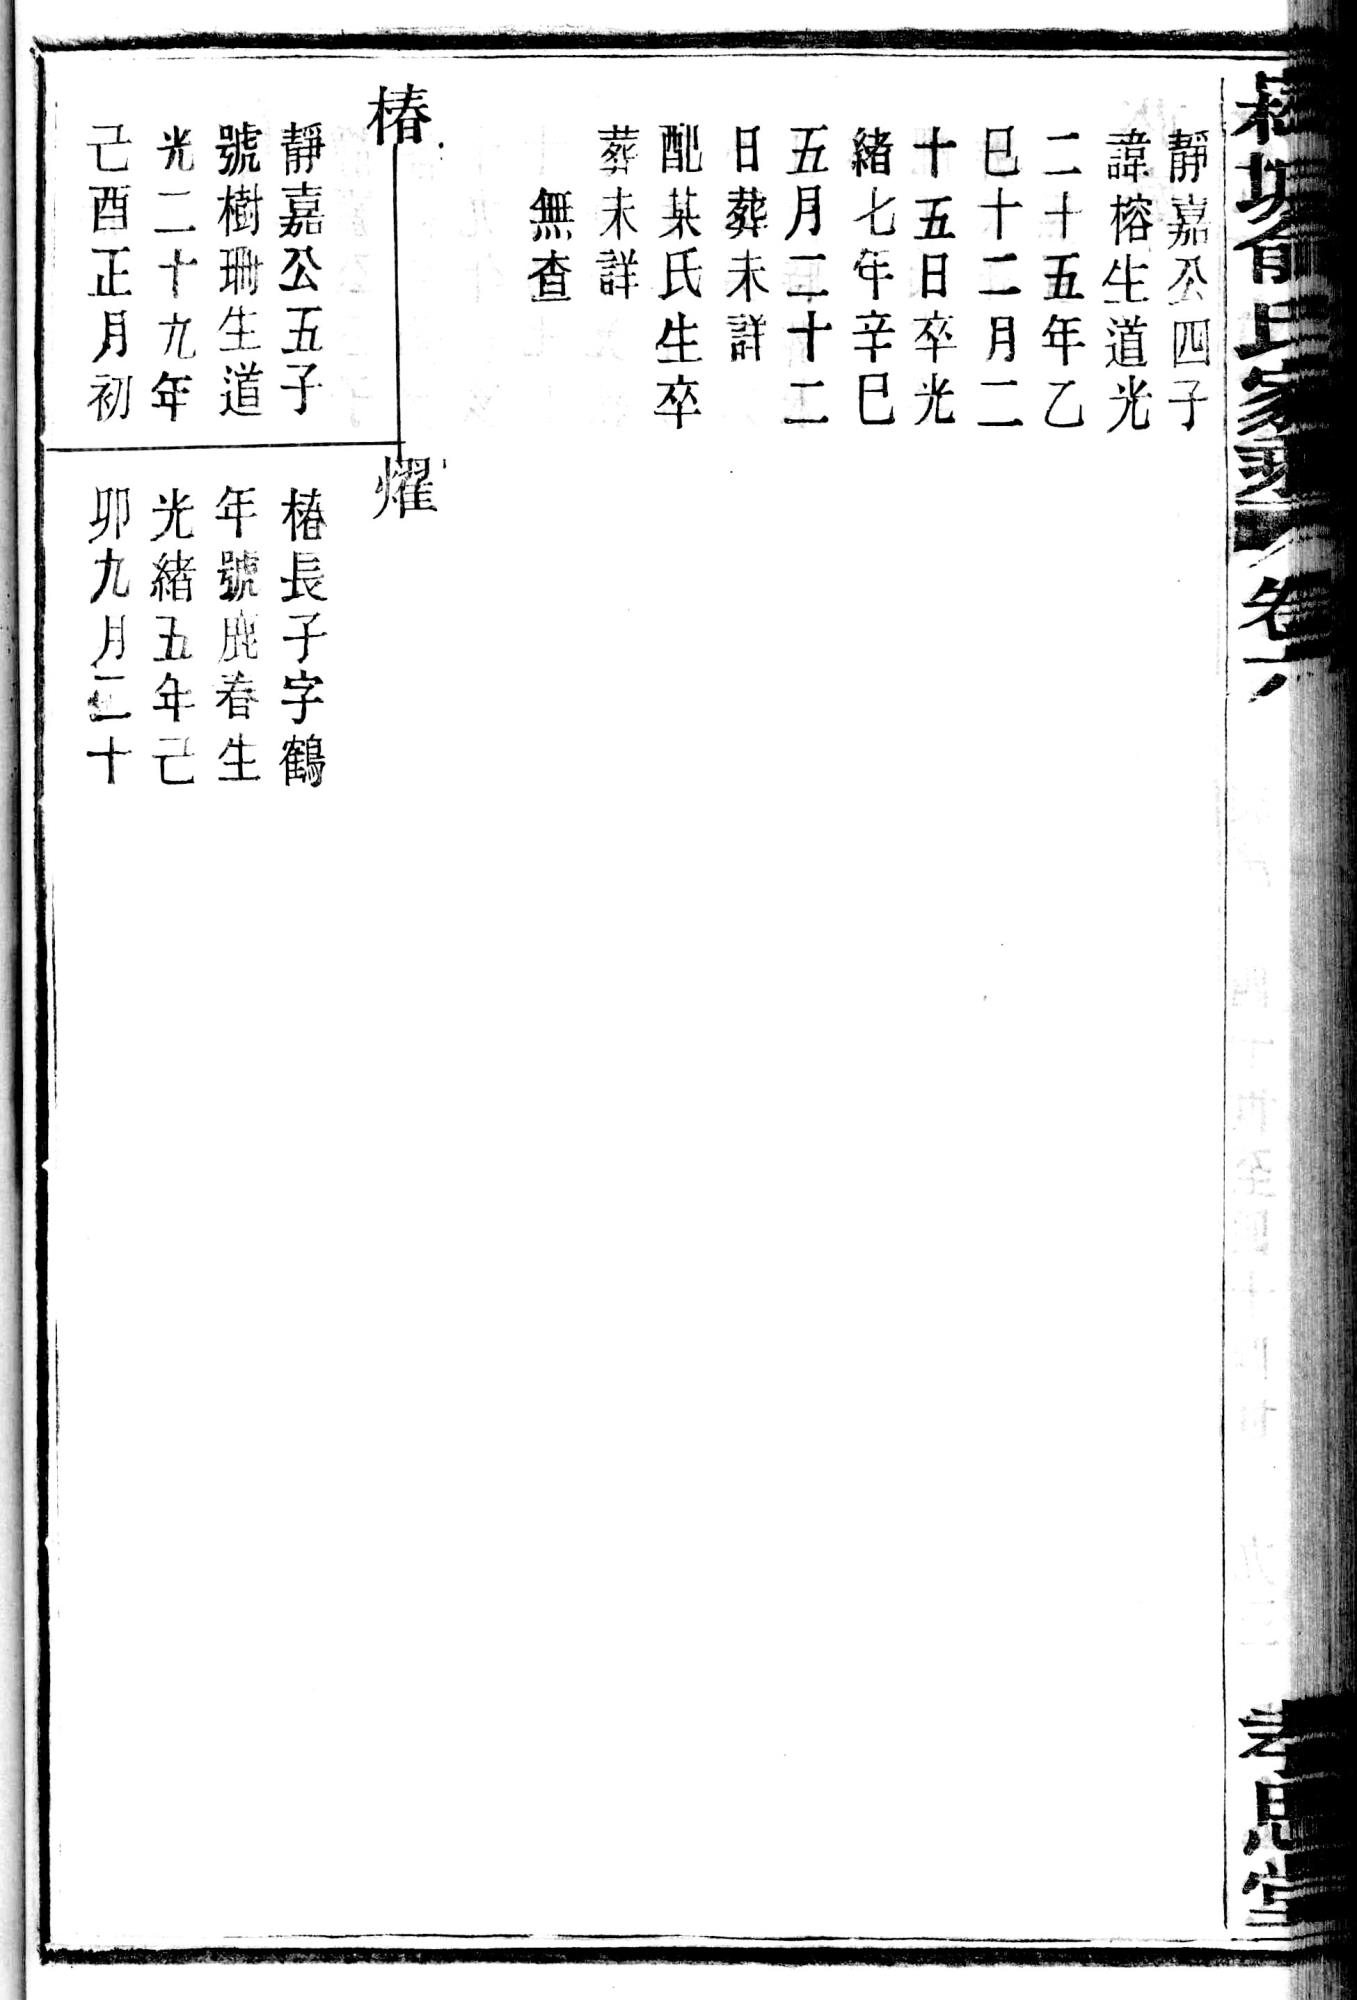 俞氏家乘
卷六
孝思堂
靜嘉公四子
諱榕生道光
二十五年乙
巳十二月二
十五日卒光
緒七年辛巳
五月二十二
日葬未詳
配某氏生卒
葬未詳
無查
椿
靜嘉公五子
號樹珊生道
光二十九年
己酉正月初
燿
椿長子字鶴
年號鹿春生
光緒五年己
卯九月二十